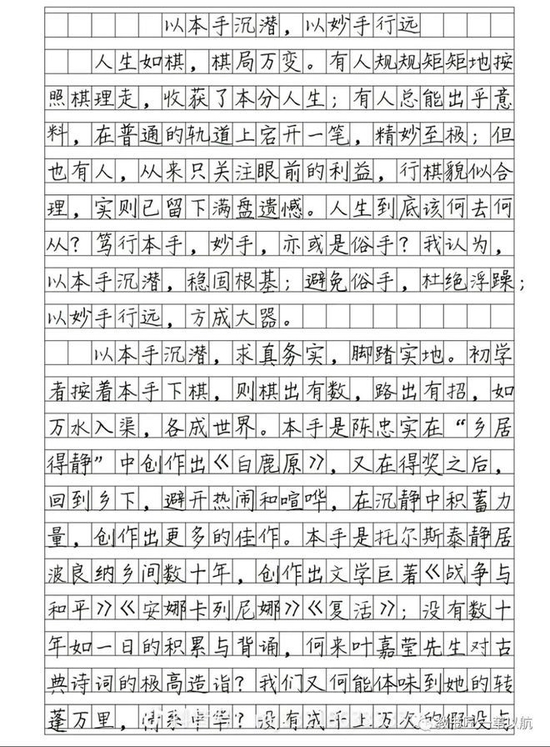 以本手沉潜，以妙手行远
人生如棋，棋局万变。有人规规矩矩地按
照棋理走，收获了本分人生；有人总能出乎意
料，在普通的轨道上宕开一笔，精妙至极；但
也有人，从来只关注眼前的利益，行棋貌似合
理，实则已留下满盘遗憾。人生到底该何去何
从？笃行本手，妙手，亦或是俗手？我认为，
以本手沉潜，稳固根基；避免俗手，杜绝浮躁；
以妙手行远，方成大器。
以本手沉潜，求真务实，脚踏实地。初学
者按着本手下棋，则棋出有数，路出有招，如
万水入渠，各成世界。本手是陈忠实在“乡居
得静”中创作出《白鹿原》，又在得奖之后，
回到乡下，避开热闹和喧哗，在沉静中积蓄力
量，创作出更多的佳作。本手是托尔斯泰静居
波良纳乡间数十年，创作出文学巨著《战争与
和平》《安娜卡列尼娜》《复活》；没有数十
年如一日的积累与背诵，何来叶嘉莹先生对古
典诗词的极高造诣？我们又何能体味到她的转
蓬万里，闲系华华？没有成千上万次的假设与